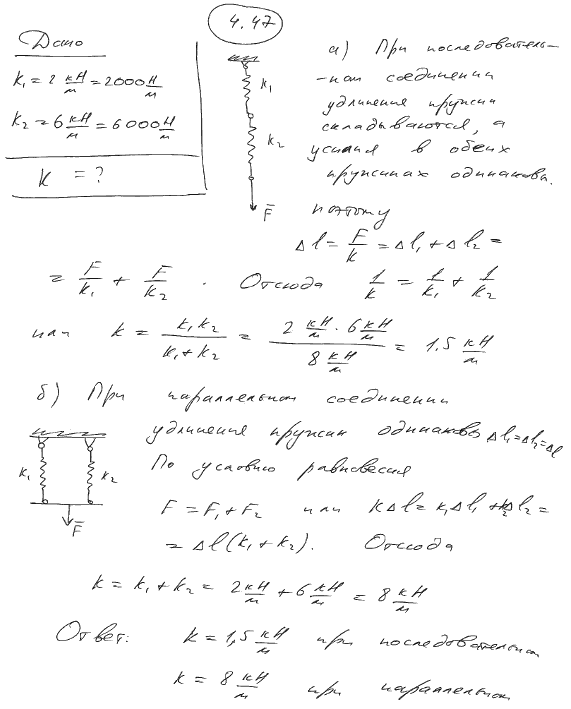 4.47
Дано
k₁ = 2 кН/м = 2000 Н/м
k₂ = 6 кН/м = 6000 Н/м
k = ?
k₁
k₂
F̄
а) При последователь-
-ном соединении
удлинения пружин
складываются, а
усилия в обеих
пружинах одинаковы.
поэтому
Δl = F/k = Δl₁ + Δl₂ =
= F/k₁ + F/k₂ . Отсюда 1/k = 1/k₁ + 1/k₂
или k = k₁k₂/(k₁+k₂) = (2 кН/м · 6 кН/м)/(8 кН/м) = 1.5 кН/м
б) При параллельном соединении
удлинения пружин одинаковы Δl₁=Δl₂=Δl
По условию равновесия
F = F₁ + F₂ или kΔl = k₁Δl₁ + k₂Δl₂ =
= Δl(k₁ + k₂). Отсюда
k₁
k₂
F̄
k = k₁ + k₂ = 2 кН/м + 6 кН/м = 8 кН/м
Ответ: k = 1,5 кН/м при последовательном
k = 8 кН/м при параллельном